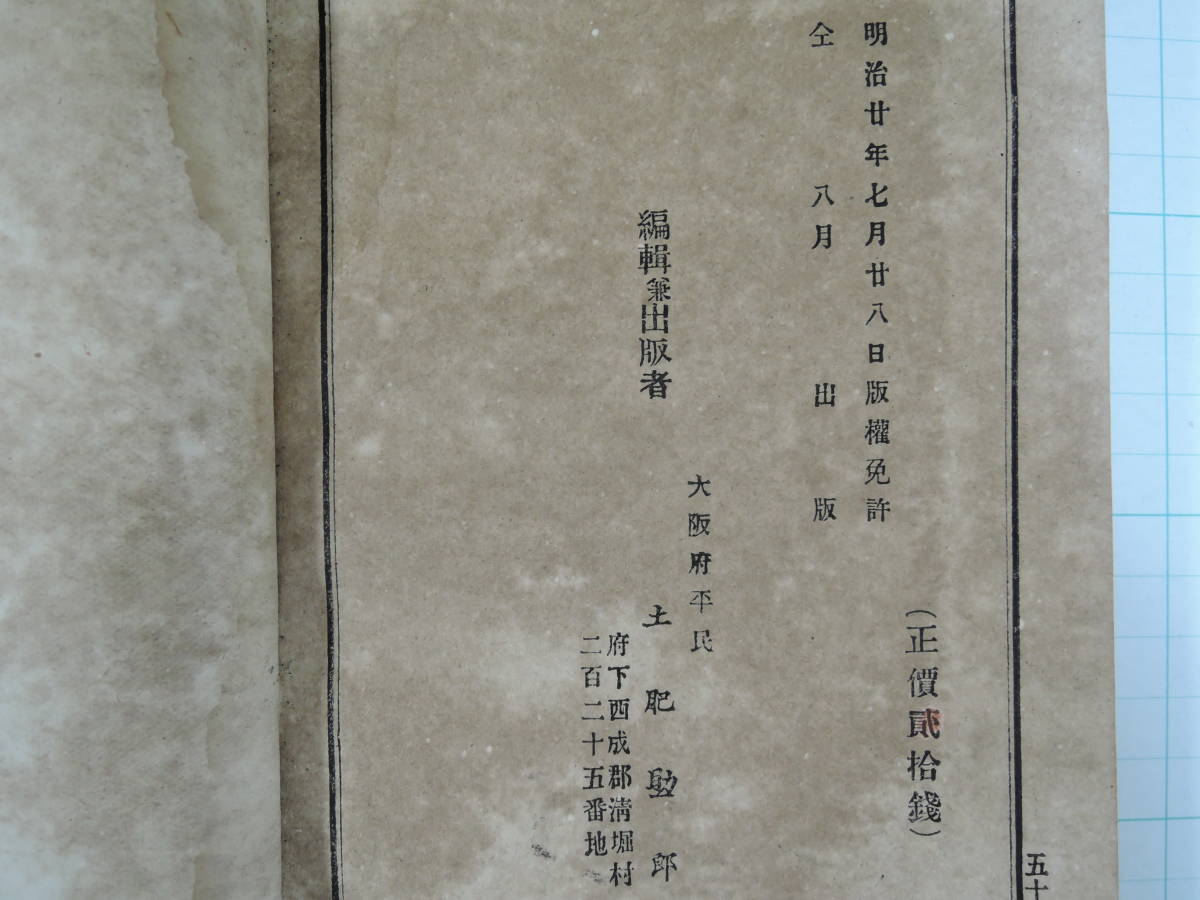 明治廿年七月廿八日版權免許
仝 八月 出版
(正價貳拾錢)
大阪府平民
編輯兼出版者 土肥助郎
府下西成郡淸堀村
二百二十五番地
五十